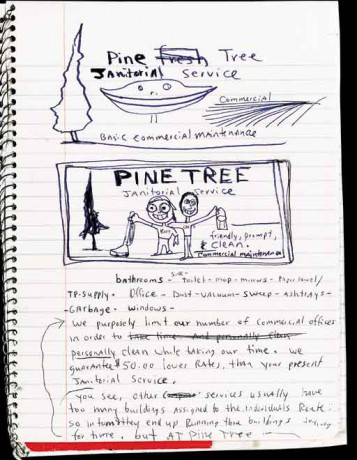 Pine Fresh Tree
Janitorial Service
Commercial
Basic commercial maintenance
PINE TREE
Janitorial Service
friendly, prompt,
& clean.
Commercial maintenance
bathrooms - sink - toilet - mop - mirrors - Paper towel/
T.P. supply. Office - Dust - vacuum - sweep - ashtrays -
- Garbage - windows -
We purposely limit our number of commercial offices
in order to take time. And personally clean
personally clean while taking our time. we
guarantee $50.00 lower Rates, than your present
Janitorial Service.
you see, other services usually have
too many buildings assigned to the individuals
so in turn they end up Running thru buildings
for time. but AT Pine Tree